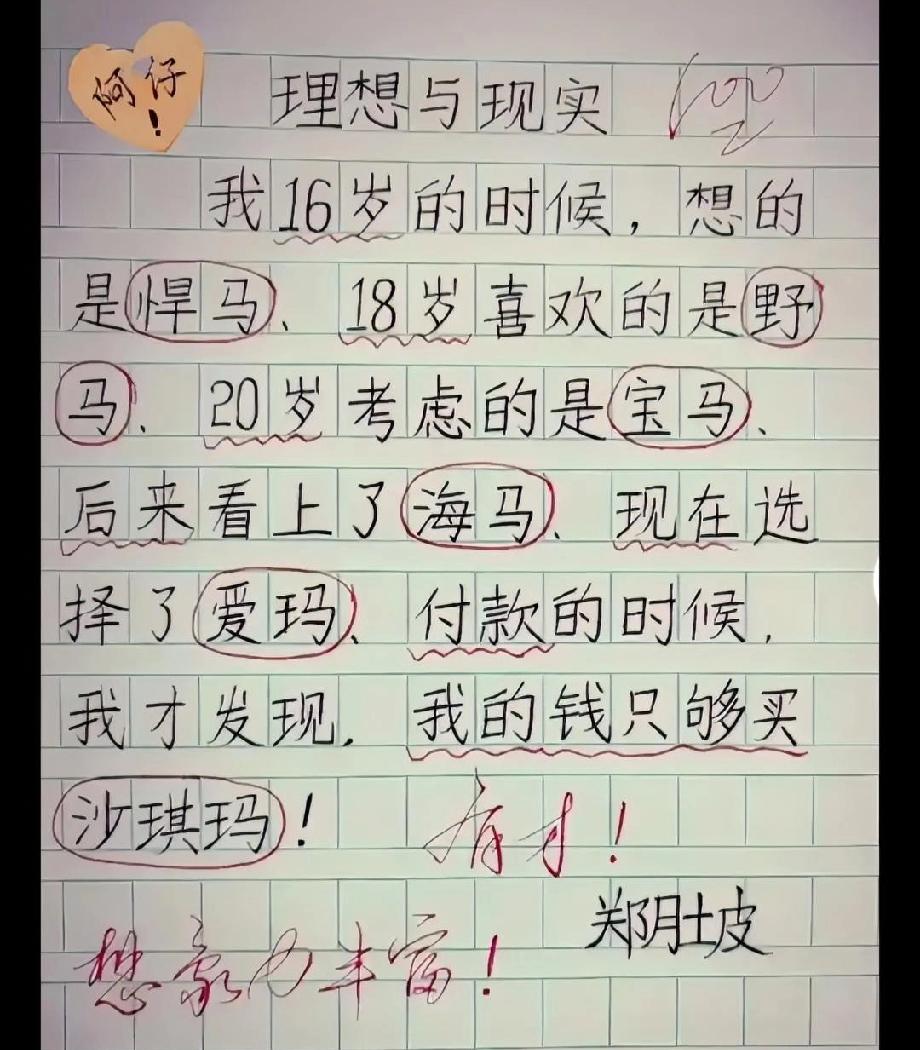 阿仔
!
理想与现实
100
我16岁的时候，想的
是悍马、18岁喜欢的是野
马、20岁考虑的是宝马、
后来看上了海马、现在选
择了爱玛、付款的时候，
我才发现，我的钱只够买
沙琪玛！
有才！
郑阴土皮
想象力丰富！